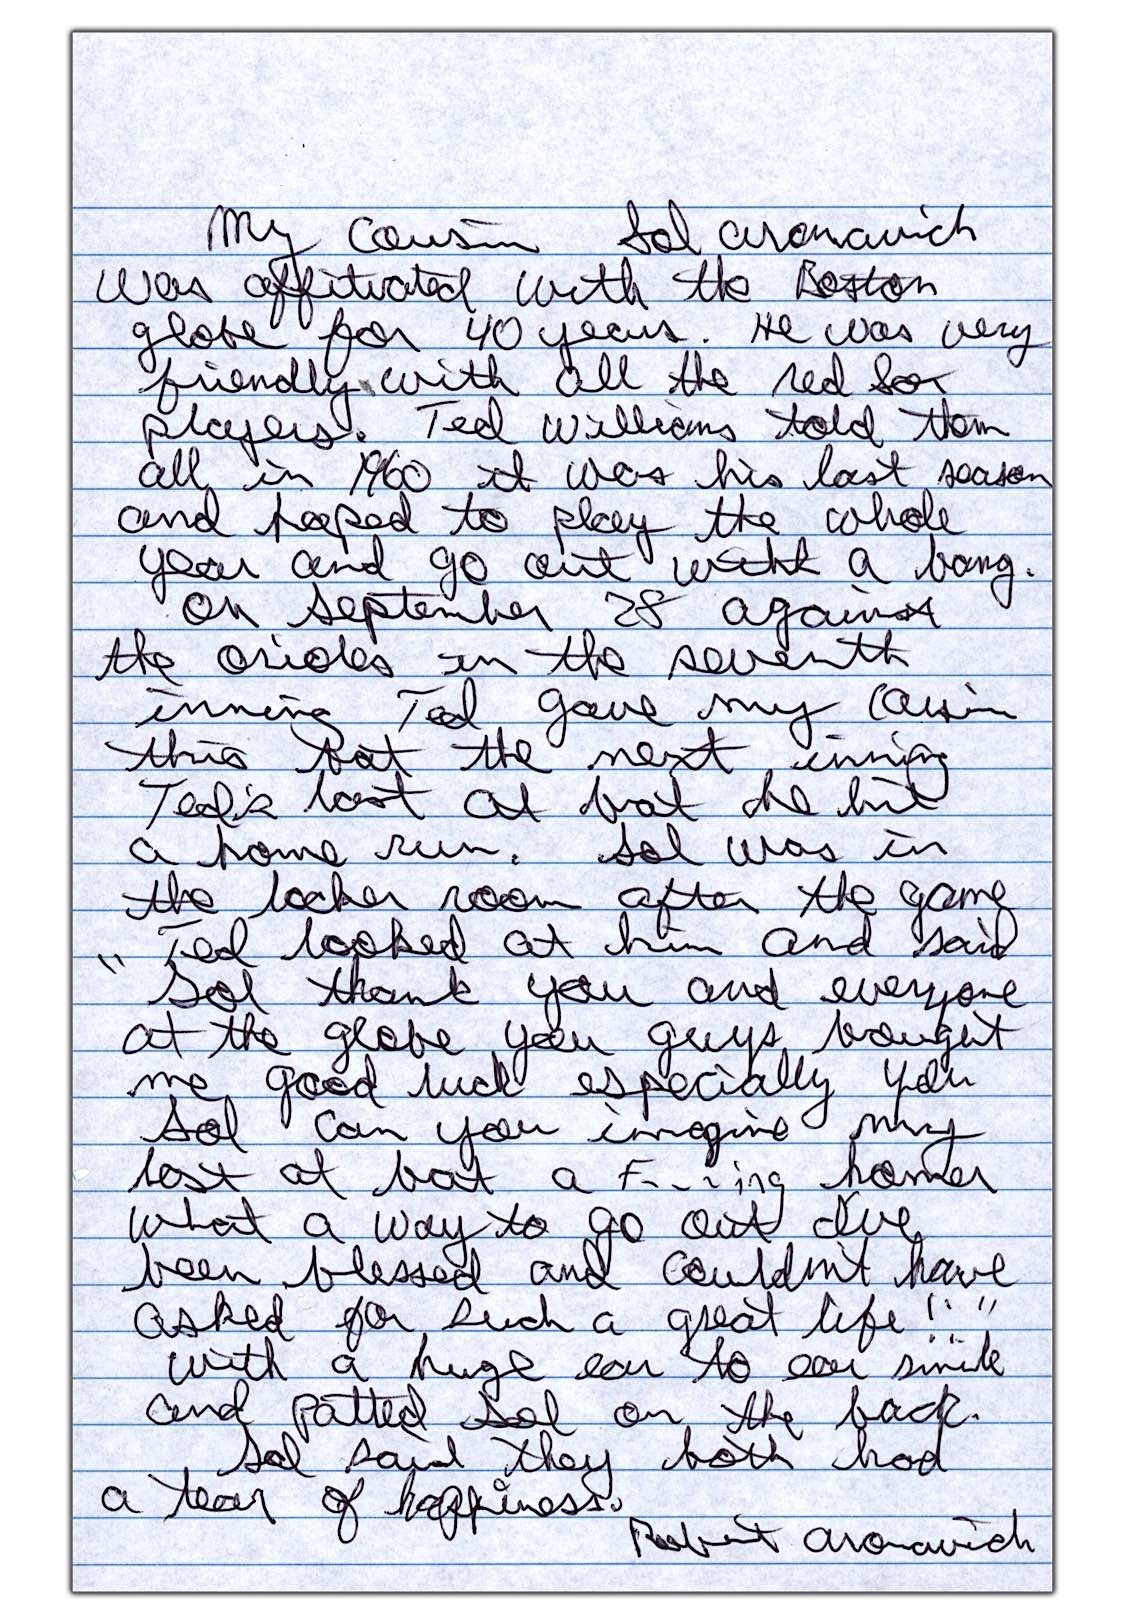 My Cousin Sol aronavich
was affiliated with the Boston
globe for 40 years. He was very
friendly with all the red Sox
players. Ted Williams told them
all in 1960 it was his last season
and hoped to play the whole
year and go out with a bang.
on September 28 against
the orioles in the seventh
inning Ted gave my Cousin
this bat the next inning
Ted's last at bat he hit
a home run. Sol was in
the locker room after the game
Ted looked at him and said
"Sol thank you and everyone
at the globe you guys bought
me good luck especially you
Sol Can you imagine my
last at bat a F---ing homer
what a way to go out I've
been blessed and couldn't have
asked for such a great life!!"
with a huge ear to ear smile
and patted Sol on the back.
Sol said they both had
a tear of happiness.
Robert aronavich